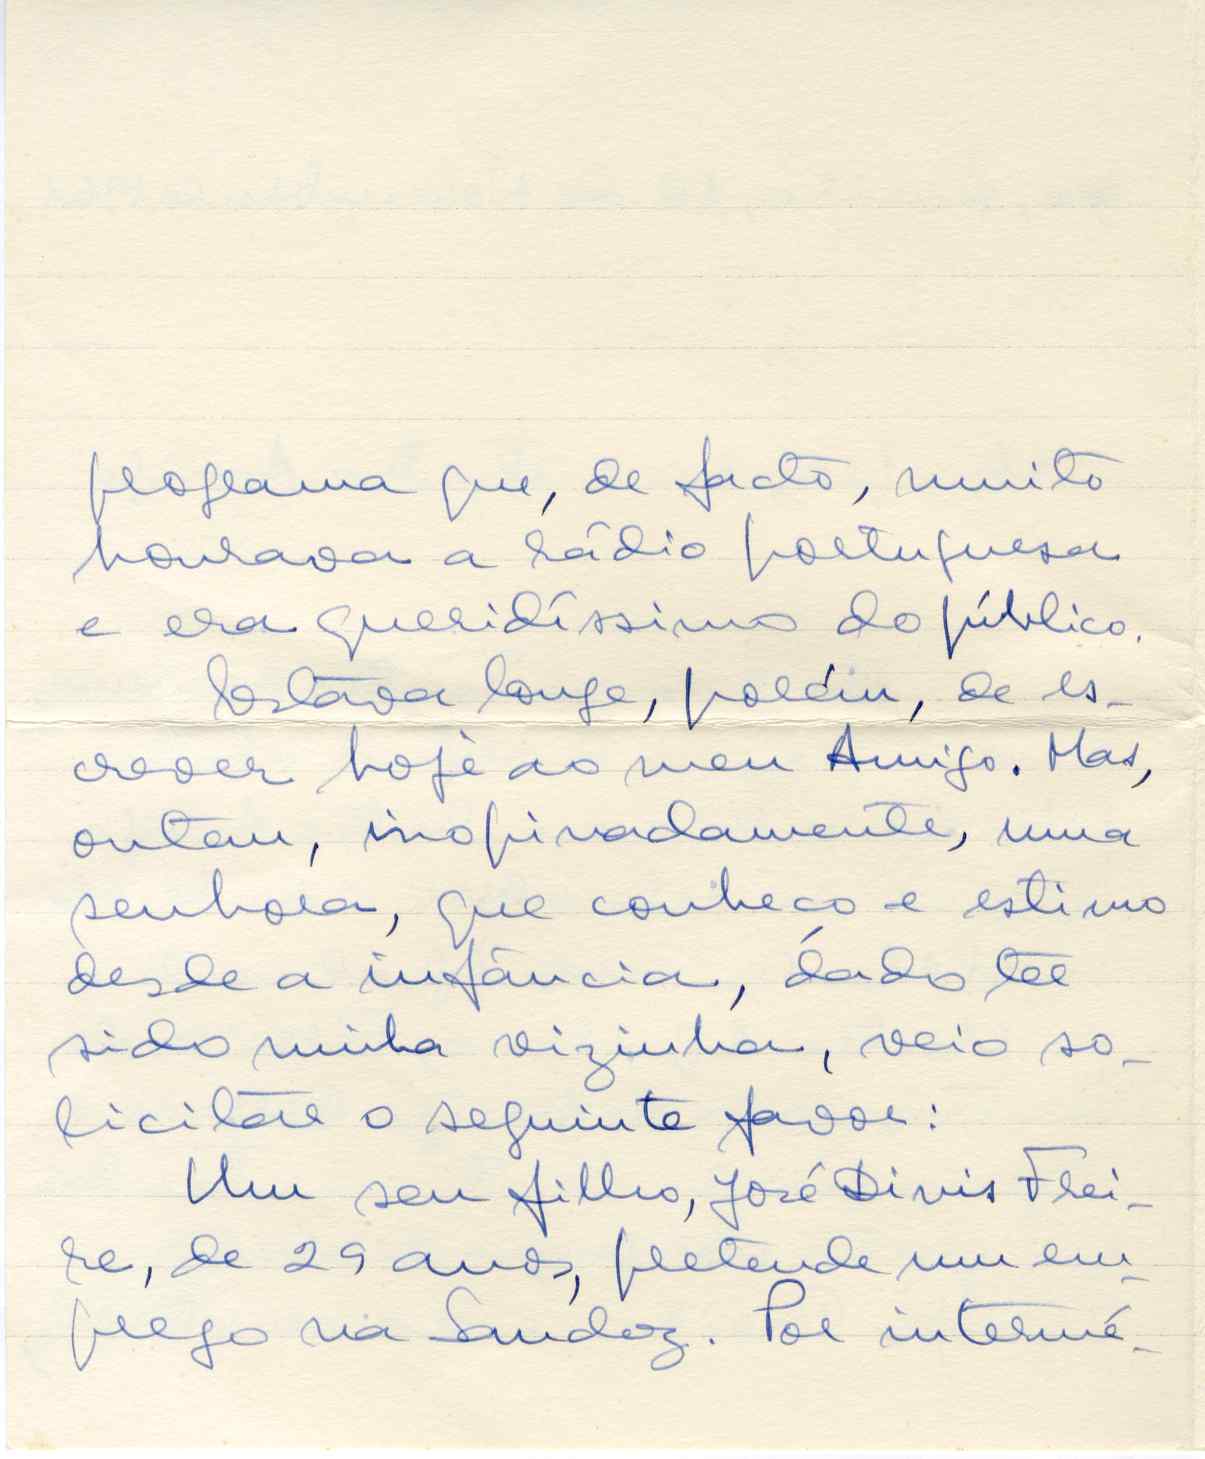 programa que, de facto, muito
honrava a rádio portuguesa
e era queridíssimo do público.
Estava longe, porém, de es-
crever hoje ao meu Amigo. Mas,
ontem, inopinadamente, uma
senhora, que conheço e estimo
desde a infância, dado ter
sido minha vizinha, veio so-
licitar o seguinte favor:
Um seu filho, José Dinis Frei-
re, de 29 anos, pretende um em-
prego na Sandoz. Por intermé-